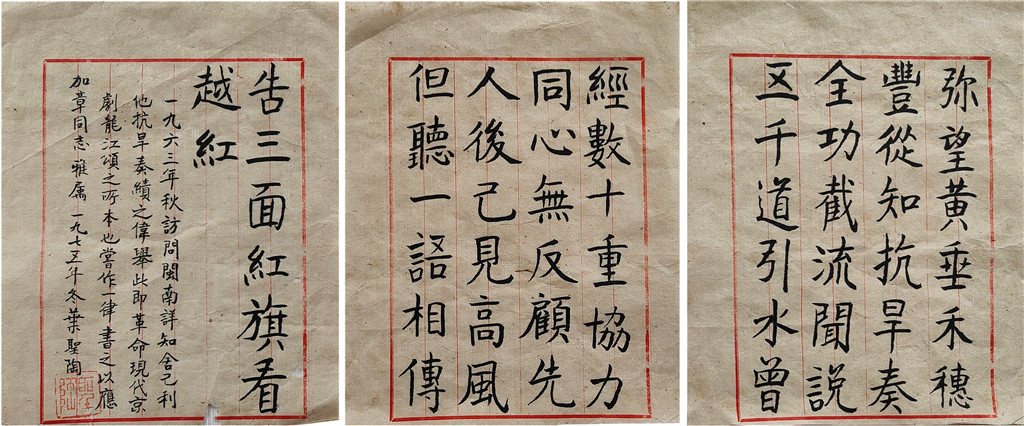 弥望黃垂禾穗
豐從知抗旱奏
全功截流聞說
五千道引水曾
經數十重協力
同心無反顧先
人後己見高風
但聽一語相傳
告三面紅旗看
越紅
一九六三年秋訪問閩南詳知舍己利
他抗旱奏績之偉舉此即革命現代京
劇龍江頌之所本也嘗作一律書之以應
加章同志雅屬 一九七五年冬葉聖陶